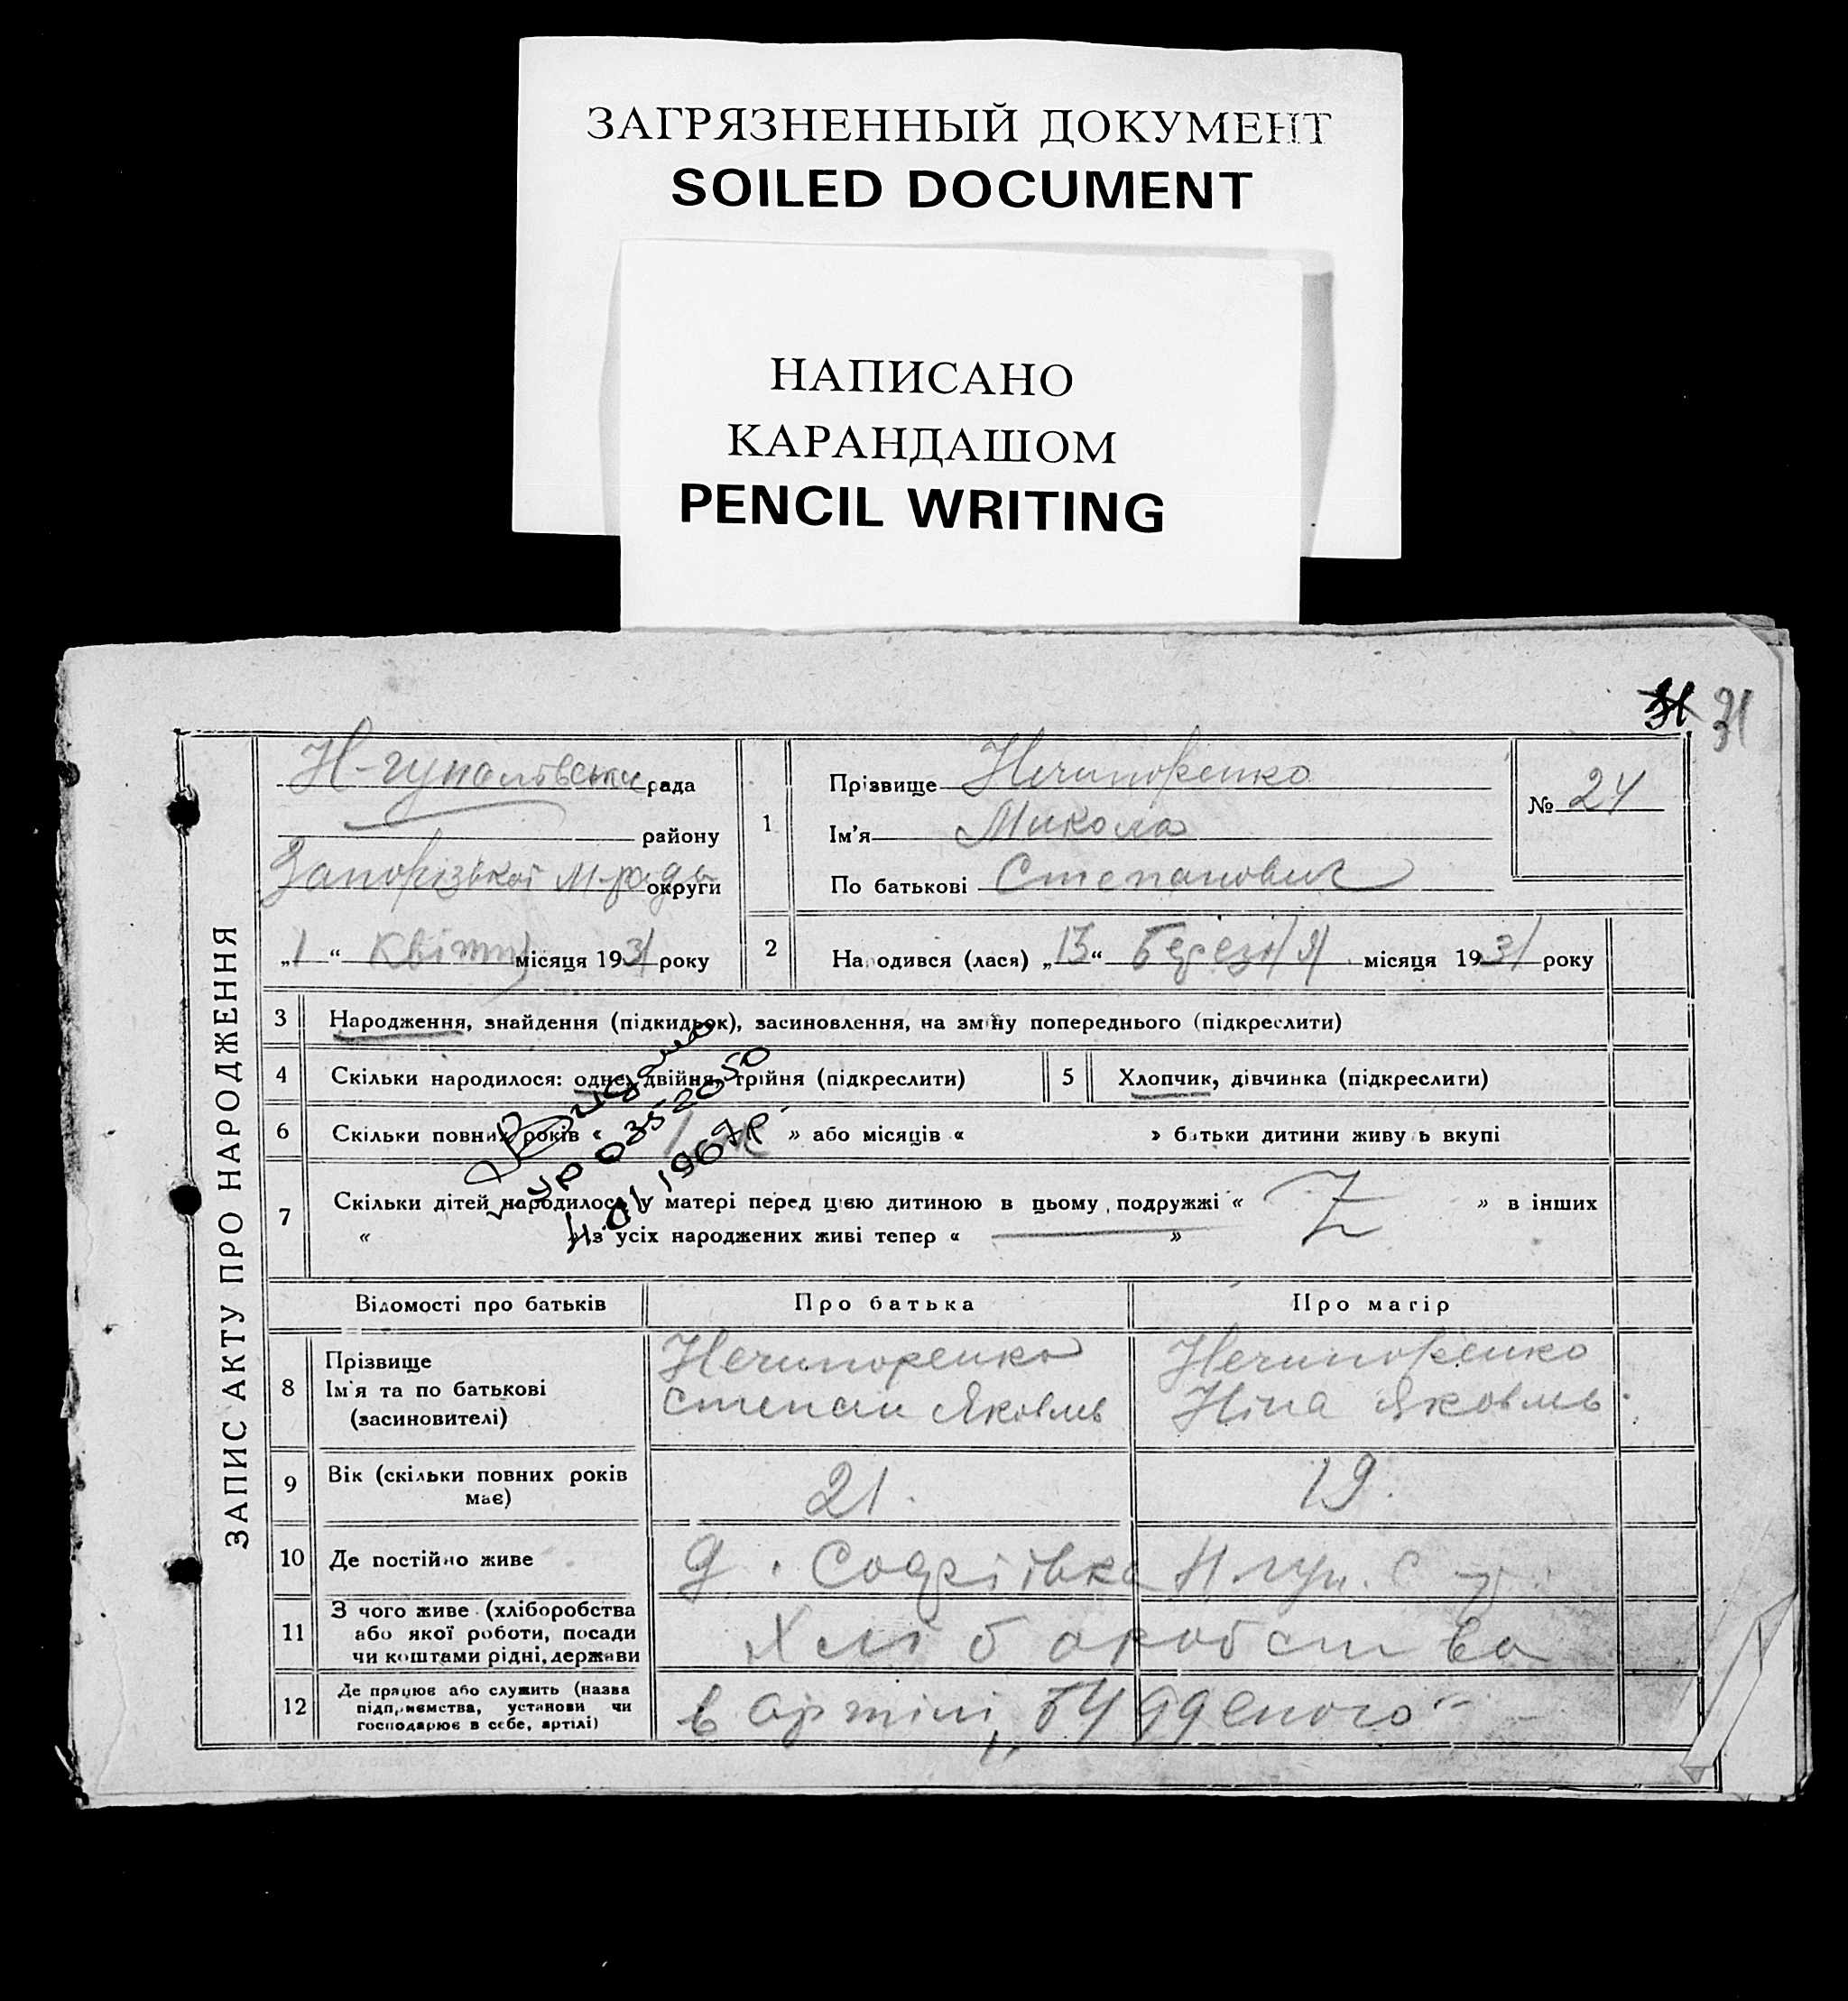 ЗАГРЯЗНЕННЫЙ ДОКУМЕНТ
SOILED DOCUMENT
НАПИСАНО
КАРАНДАШОМ
PENCIL WRITING
31 31
ЗАПИС АКТУ ПРО НАРОДЖЕННЯ
рада
району
Запорізької м-ради округи
„1“ Квітня місяця 1931 року
1
Прізвище Нечипоренко
Ім'я Микола
По батькові Степанович
№ 24
2 Народився (лася) „13“ Березня місяця 1931 року
3 Народження, знайдення (підкидьок), засиновлення, на зміну попереднього (підкреслити)
4 Скільки народилося: одне, двійня, трійня (підкреслити)
5 Хлопчик, дівчинка (підкреслити)
6 Скільки повних років « 1 » або місяців « » батьки дитини живуть вкупі
7 Скільки дітей народилося у матері перед цією дитиною в цьому подружжі « » в інших
« » з усіх народжених живі тепер « »
Видано
УР 0352050
1967р.
Відомості про батьків Про батька Про матір
8 Прізвище
Ім'я та по батькові
(засиновителі)
Нечипоренко
Степан Яковлів
Нечипоренко
Ніна Яковлів
9 Вік (скільки повних років
має)
21. 19.
10 Де постійно живе
11 З чого живе (хліборобства
або якої роботи, посади
чи коштами рідні, держави
Хліборобства
12 Де працює або служить (назва
підприємства, установи чи
господарює в себе, артілі)
в артілі „Будденого“